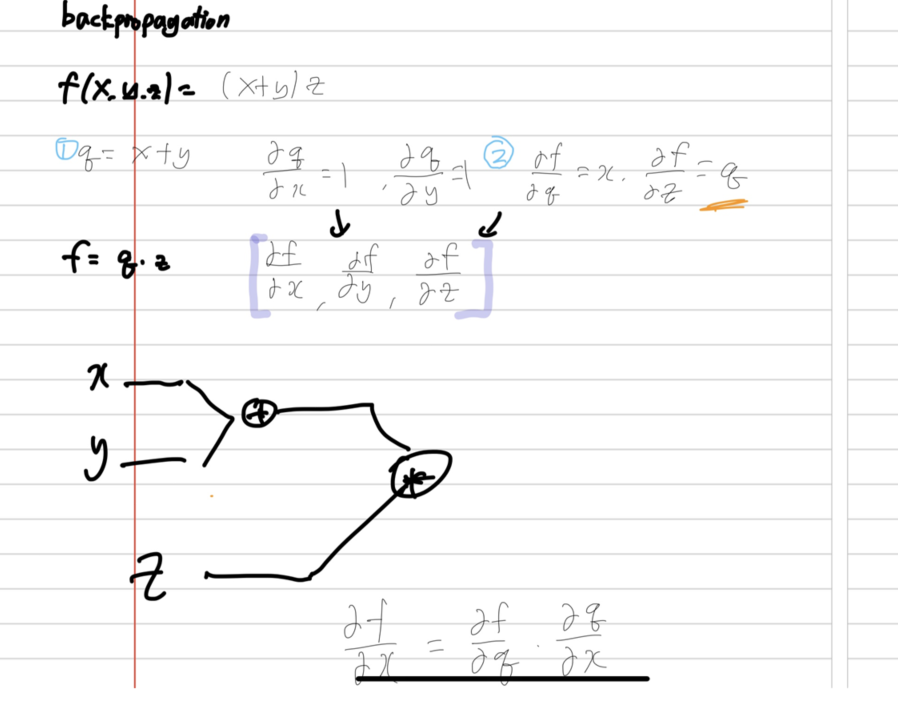 backpropagation
f(x.y.z)= (x+y)z
①q= x+y ∂q/∂x =1 , ∂q/∂y =1 ② ∂f/∂q = x. ∂f/∂z = q
↓ ↙
f= q·z [∂f/∂x , ∂f/∂y , ∂f/∂z]
x
+
y
*
z
∂f/∂x = ∂f/∂q · ∂q/∂x